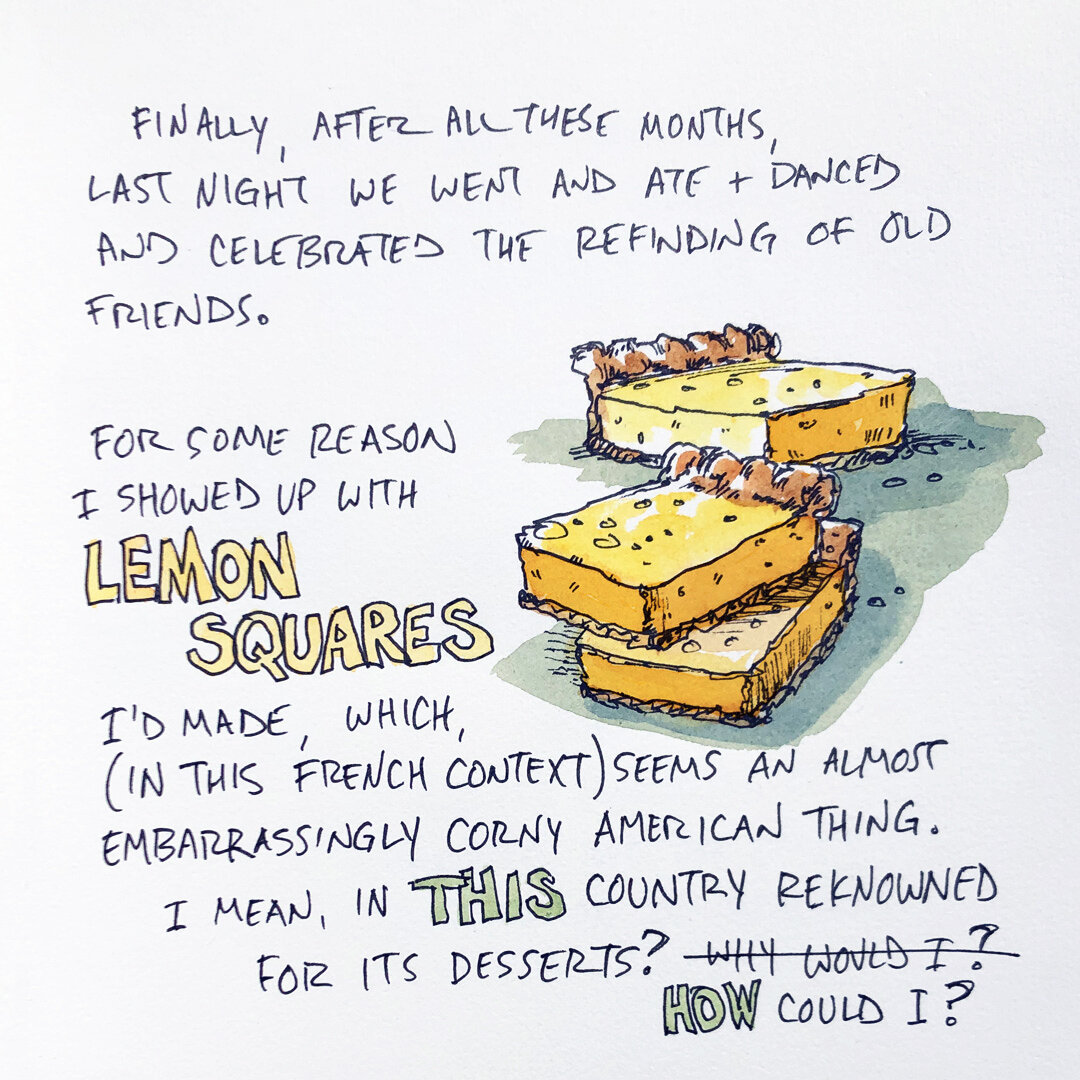 FINALLY, AFTER ALL THESE MONTHS,
LAST NIGHT WE WENT AND ATE + DANCED
AND CELEBRATED THE REFINDING OF OLD
FRIENDS.
FOR SOME REASON
I SHOWED UP WITH
LEMON
SQUARES
I'D MADE, WHICH,
(IN THIS FRENCH CONTEXT) SEEMS AN ALMOST
EMBARRASSINGLY CORNY AMERICAN THING.
I MEAN, IN THIS COUNTRY REKNOWNED
FOR ITS DESSERTS? WHY WOULD I?
HOW COULD I?